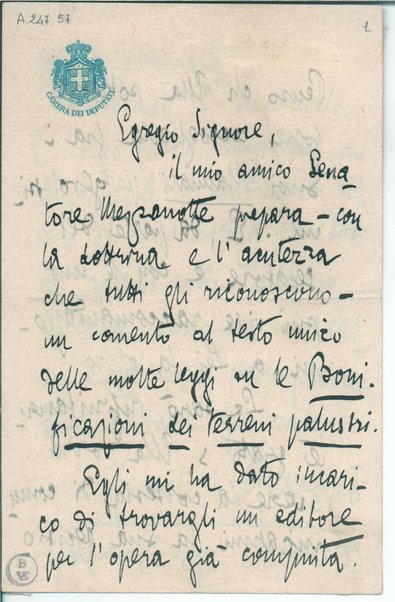 A.247.57
1
CAMERA DEI DEPUTATI
Egregio Signore,
il mio amico Sena
tore Mezzanotte prepara – con
la dottrina e l'acutezza
che tutti gli riconoscono –
un comento al testo unico
delle molte leggi su le Boni-
ficazioni dei terreni palustri.
Egli mi ha dato incari-
co di trovargli un editore
per l'opera già compiuta.